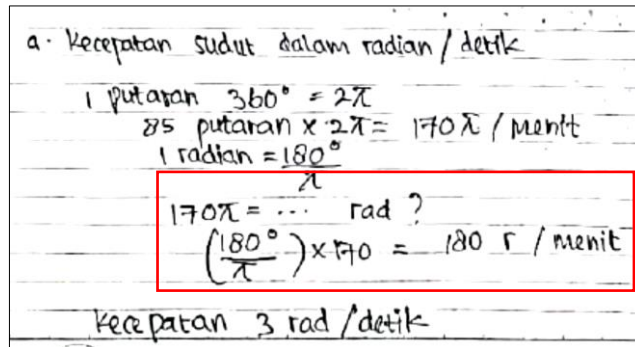 a. Kecepatan sudut dalam radian / detik
1 putaran 360° = 2π
85 putaran x 2π = 170π / menit
1 radian = 180°/π
170π = ... rad ?
(180°/π) x 170 = 180 r / menit
Kecepatan 3 rad / detik